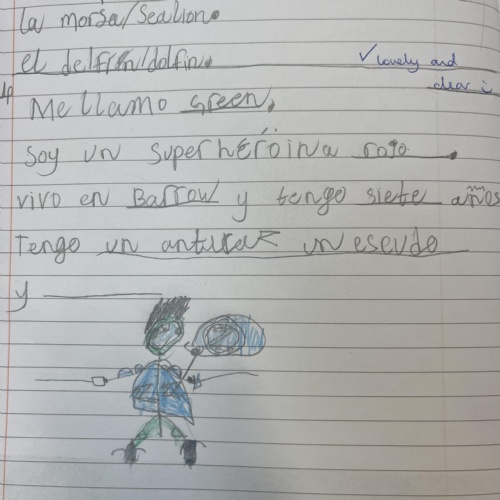 la morsa/Sealion.
el delfin/dolfin.
✓ lovely and
clear i
Me llamo Green.
Soy un superhéroina rojo.
vivo en Barrow y tengo siete años
Tengo un antifaz un escudo
y